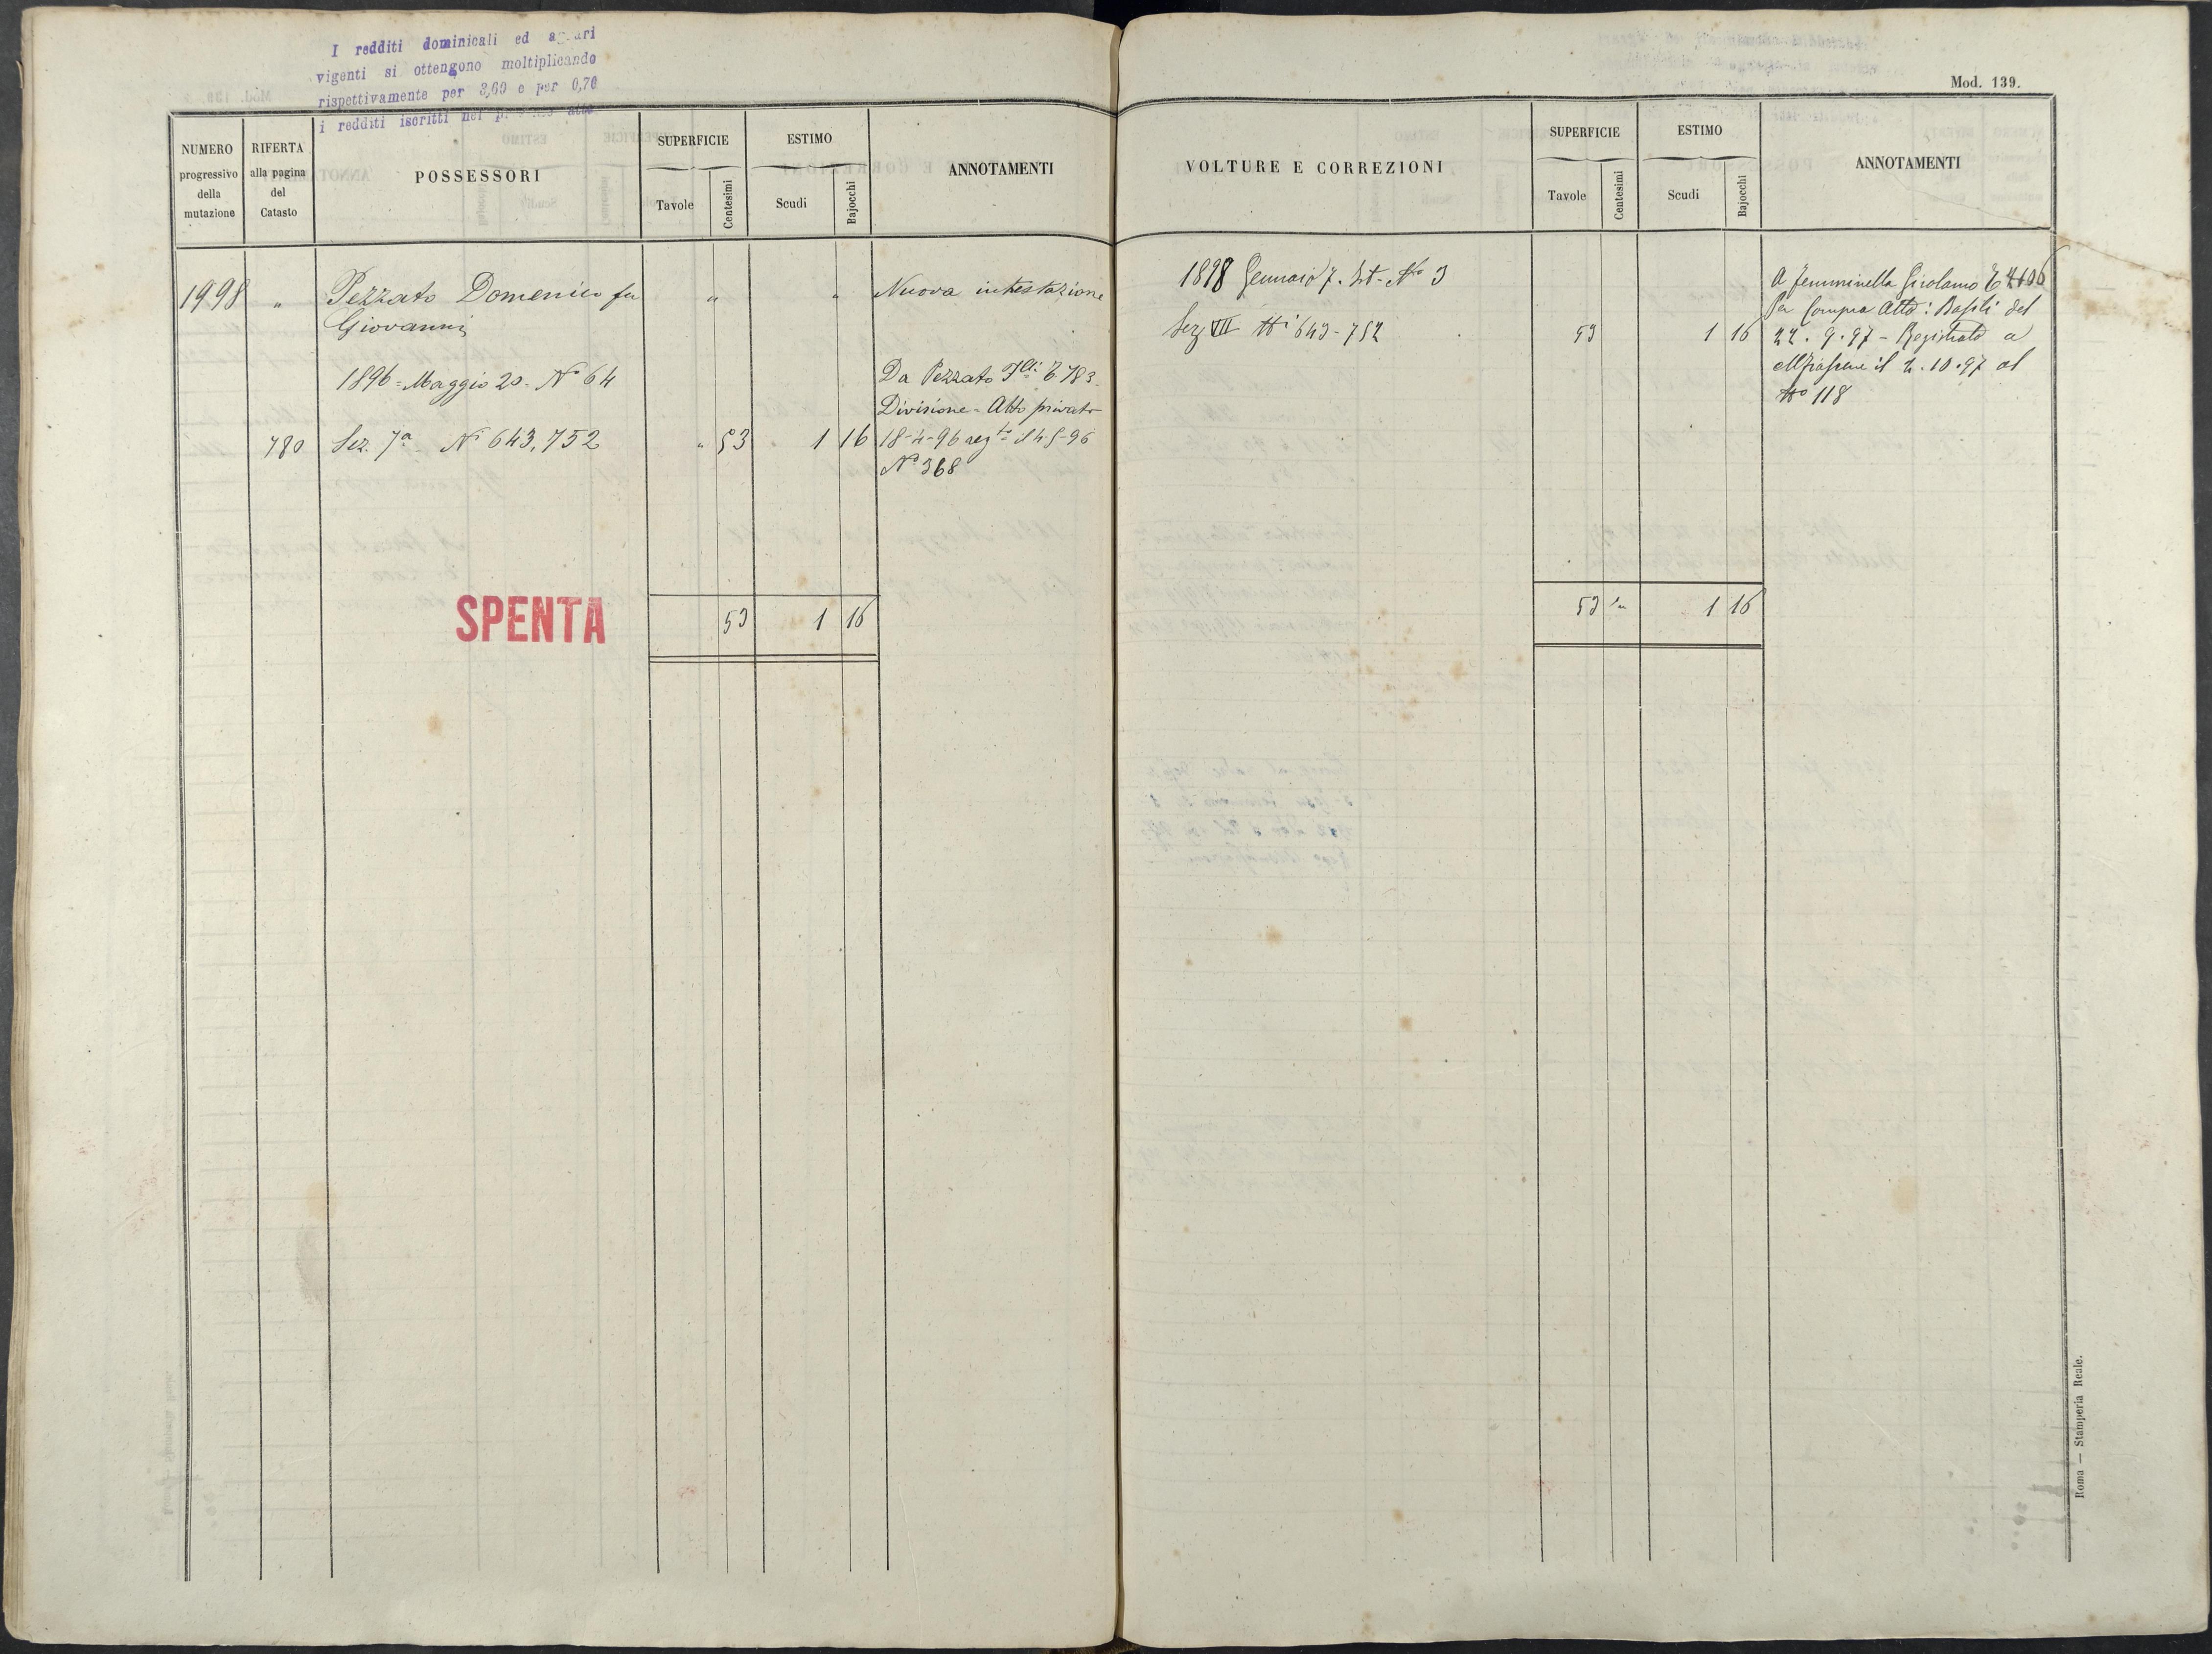 I redditi dominicali ed agrari
vigenti si ottengono moltiplicando
rispettivamente per 3,60 e per 0,70
i redditi iscritti nel
Mod. 139.
NUMERO progressivo della mutazione
RIFERTA alla pagina del Catasto
POSSESSORI
SUPERFICIE
Tavole
Centesimi
ESTIMO
Scudi
Bajocchi
ANNOTAMENTI
1998 " Pezzato Domenico fu " " Nuova intestazione
Giovanni
1896 = Maggio 20 - N° 64 Da Pezzato F.lli 783
Divisione - Atto privato
780 Sez. 7a - Ni 643, 752 " 53 1 16 18-4-96 regto il 4-5-96
N° 368
SPENTA
53 1 16
VOLTURE E CORREZIONI
SUPERFICIE
Tavole
Centesimi
ESTIMO
Scudi
Bajocchi
ANNOTAMENTI
1898 Gennaio 7. N° 3
Sez VII Ni 643-752 53 1 16
A Femminella Girolamo
Per Compra Atto: Basili del
22. 9. 97 - Registrato a
il 2. 10. 97 al
N° 118
53 1 16
Roma — Stamperia Reale.